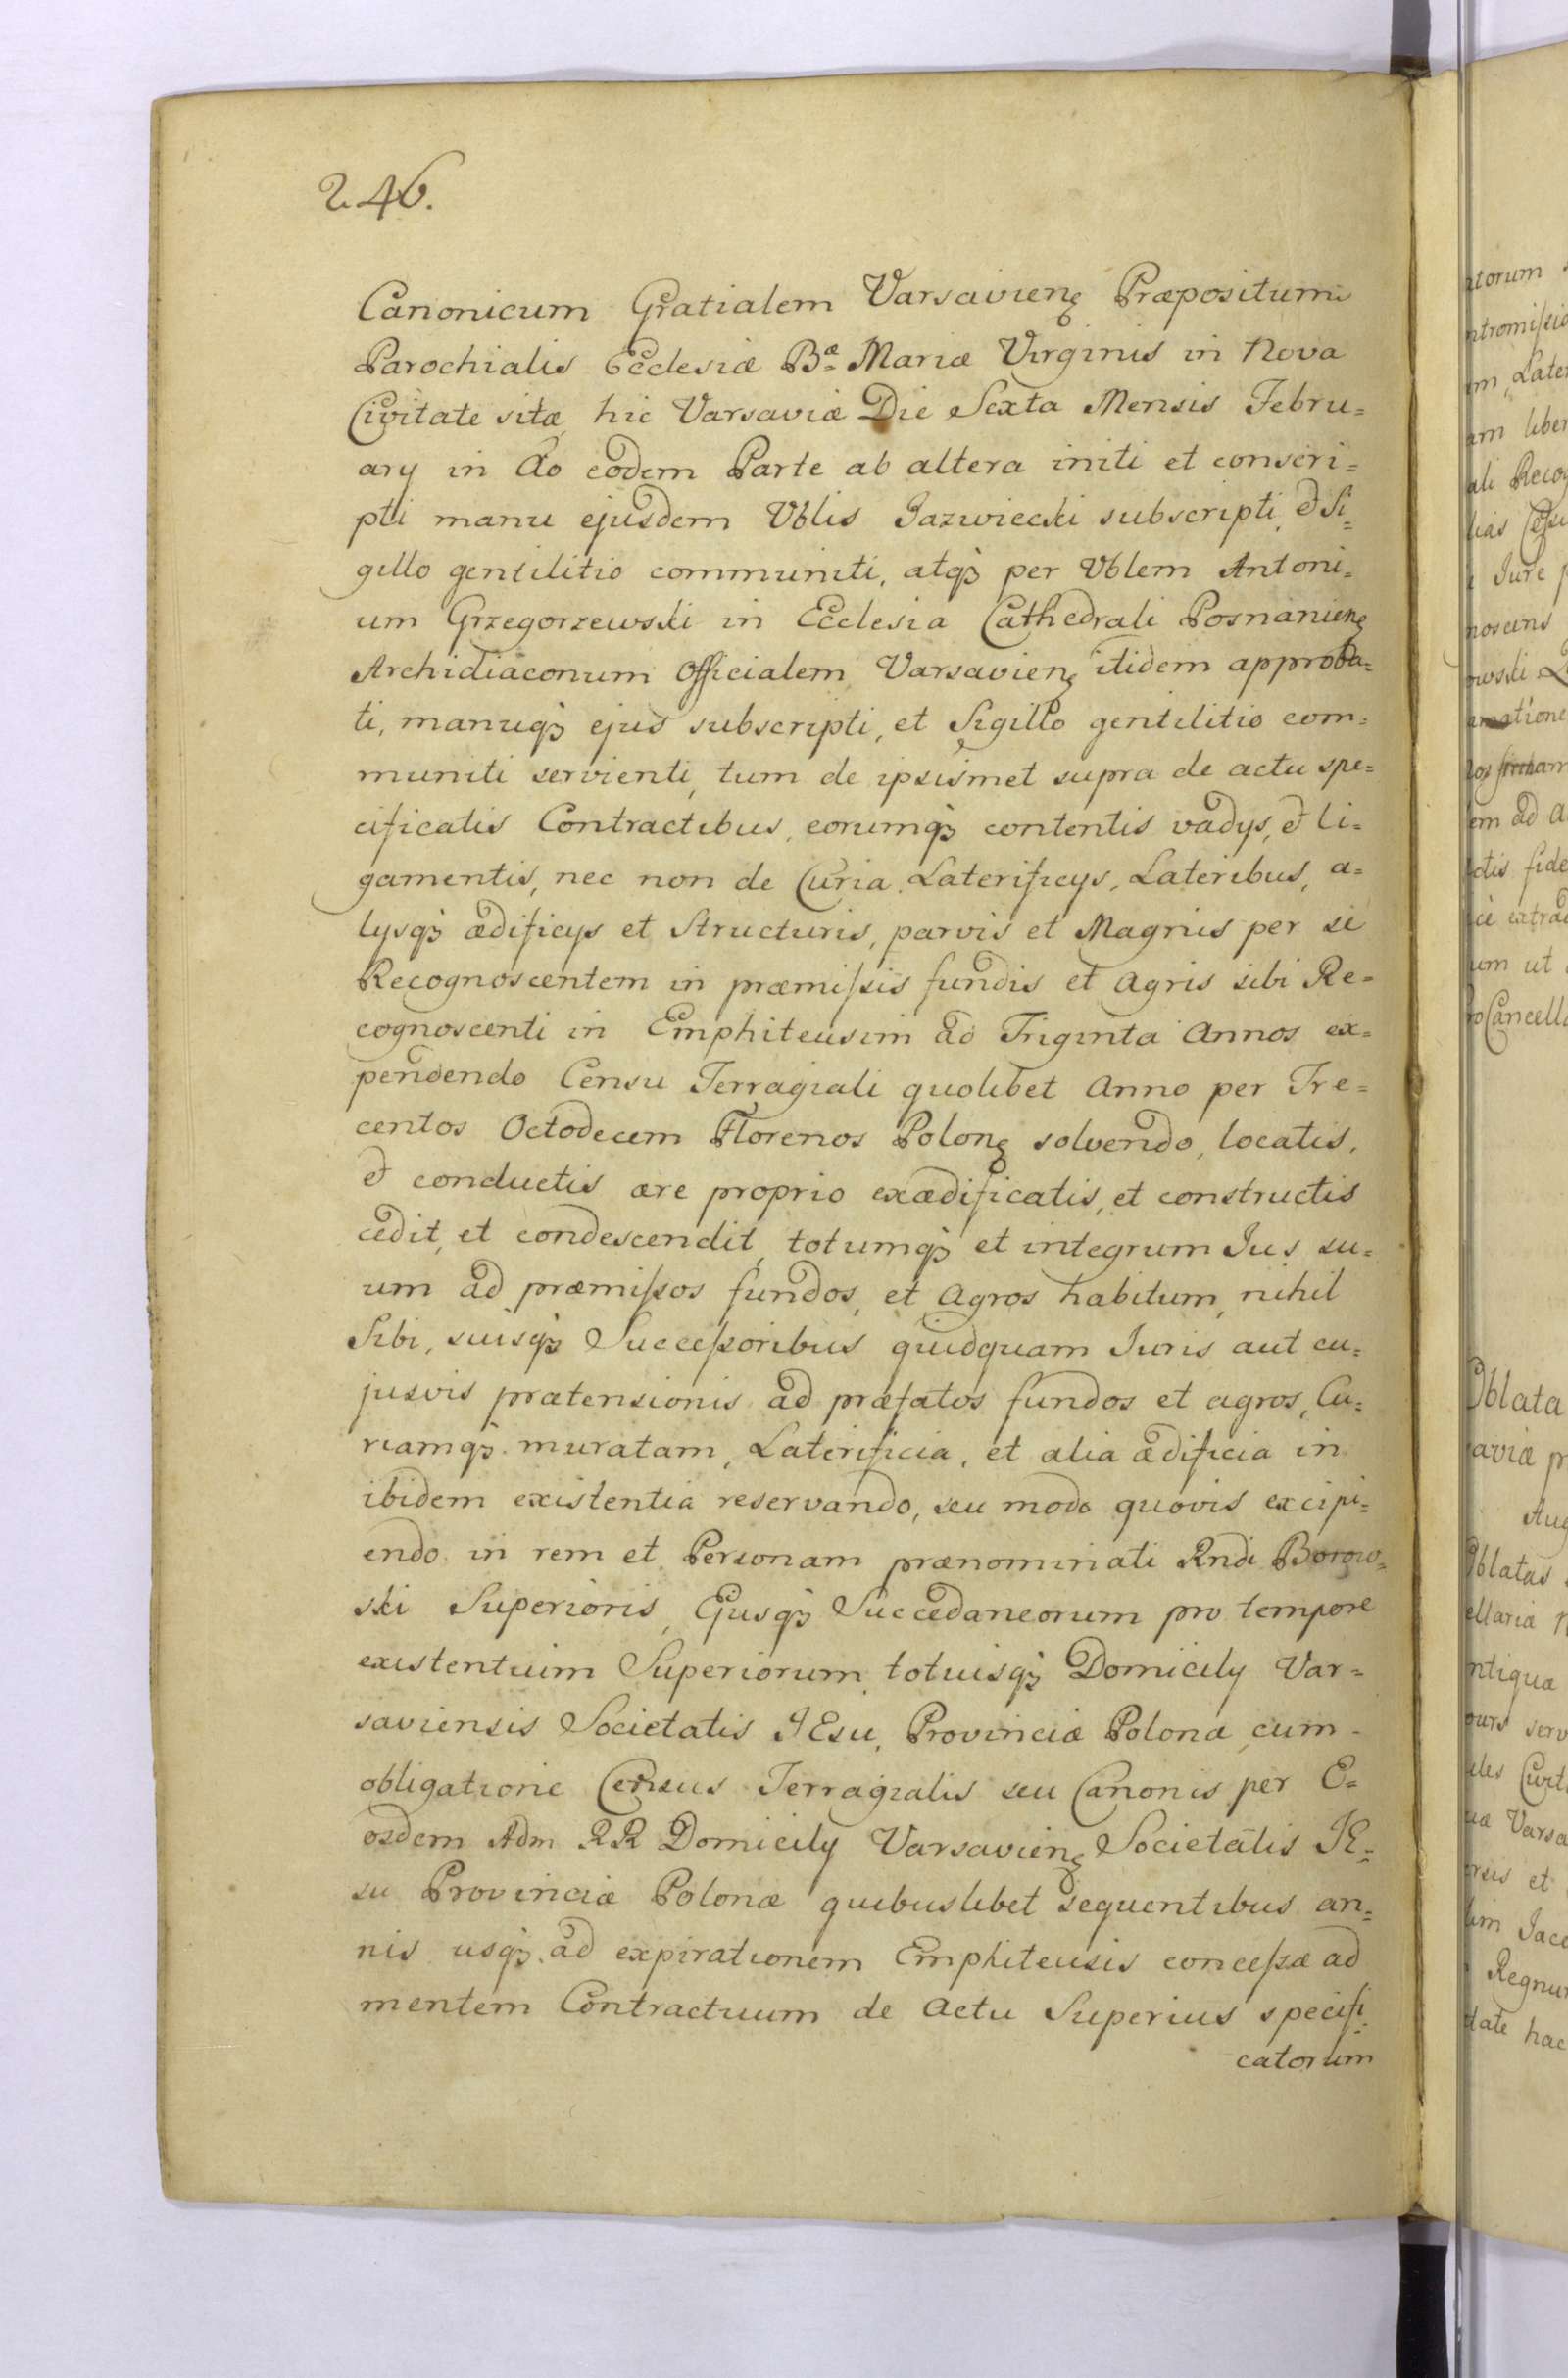 246.
Canonicum Gratialem Varsavienę Præpositum
Parochialis Ecclesiæ Bæ Mariæ Virginis in Nova
Civitate sitæ, hic Varsaviæ Die Sexta Mensis Febru=
ary in Ao eodem Parte ab altera initi et conscri=
pti manu ejusdem Vblis Jazwiecki subscripti, & Si=
gillo gentilitio communiti, atqꝫ per Vblem Antoni=
um Grzegorzewski in Ecclesia Cathedrali Posnanienę
Archidiaconum Officialem Varsavienę itidem approba=
ti, manuqꝫ ejus subscripti, et Sigillo gentilitio com=
muniti servienti, tum de ipsismet supra de actu spe=
cificatis Contractibus, eorumqꝫ contentis vadys, & li=
gamentis, nec non de Curia, Laterificys, Lateribus, a=
lysqꝫ ædificys et Structuris, parvis et Magnis per se
Recognoscentem in præmissis fundis et Agris sibi Re=
cognoscenti in Emphiteusim ad Triginta Annos ex=
pendendo Censu Terragiali quolibet Anno per Tre=
centos Octodecem Florenos Polonę solvendo, locatis,
& conductis ære proprio exædificatis, et constructis
cedit, et condescendit, totumqꝫ et integrum Jus su=
um ad præmissos fundos, et Agros habitum, nihil
Sibi, suisqꝫ Successoribus quidquam Juris aut cu=
jusvis prætensionis ad præfatos fundos et agros, Cu=
riamqꝫ muratam, Laterificia, et alia ædificia in
ibidem existentia reservando, seu modo quovis excipi=
endo in rem et Personam prænominati Rndi Borow=
ski Superioris, Ejusqꝫ Succedaneorum pro tempore
existentium Superiorum, totiusqꝫ Domicily Var=
saviensis Societatis JEsu, Provinciæ Polonæ, cum
obligatione Census Terragialis seu Canonis per E=
osdem Adm RR Domicily Varsavienę Societatis JE=
su Provinciæ Polonæ quibuslibet sequentibus an=
nis usqꝫ ad expirationem Emphiteusis concessæ ad
mentem Contractuum de Actu Superius specifi=
catorum